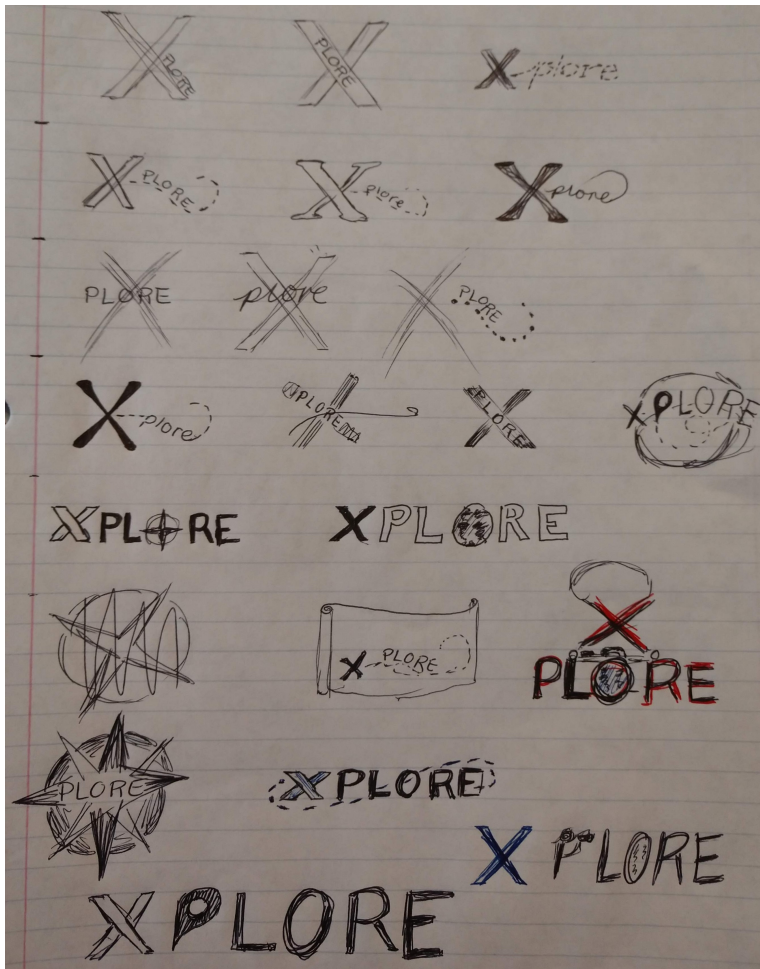 X PLORE X PLORE X plore
X PLORE X plore X plore
X PLORE X plore X PLORE
X plore X PLORE X PLORE XPLORE
XPLORE XPLORE
X PLORE X PLORE
PLORE XPLORE
X PLORE
XPLORE